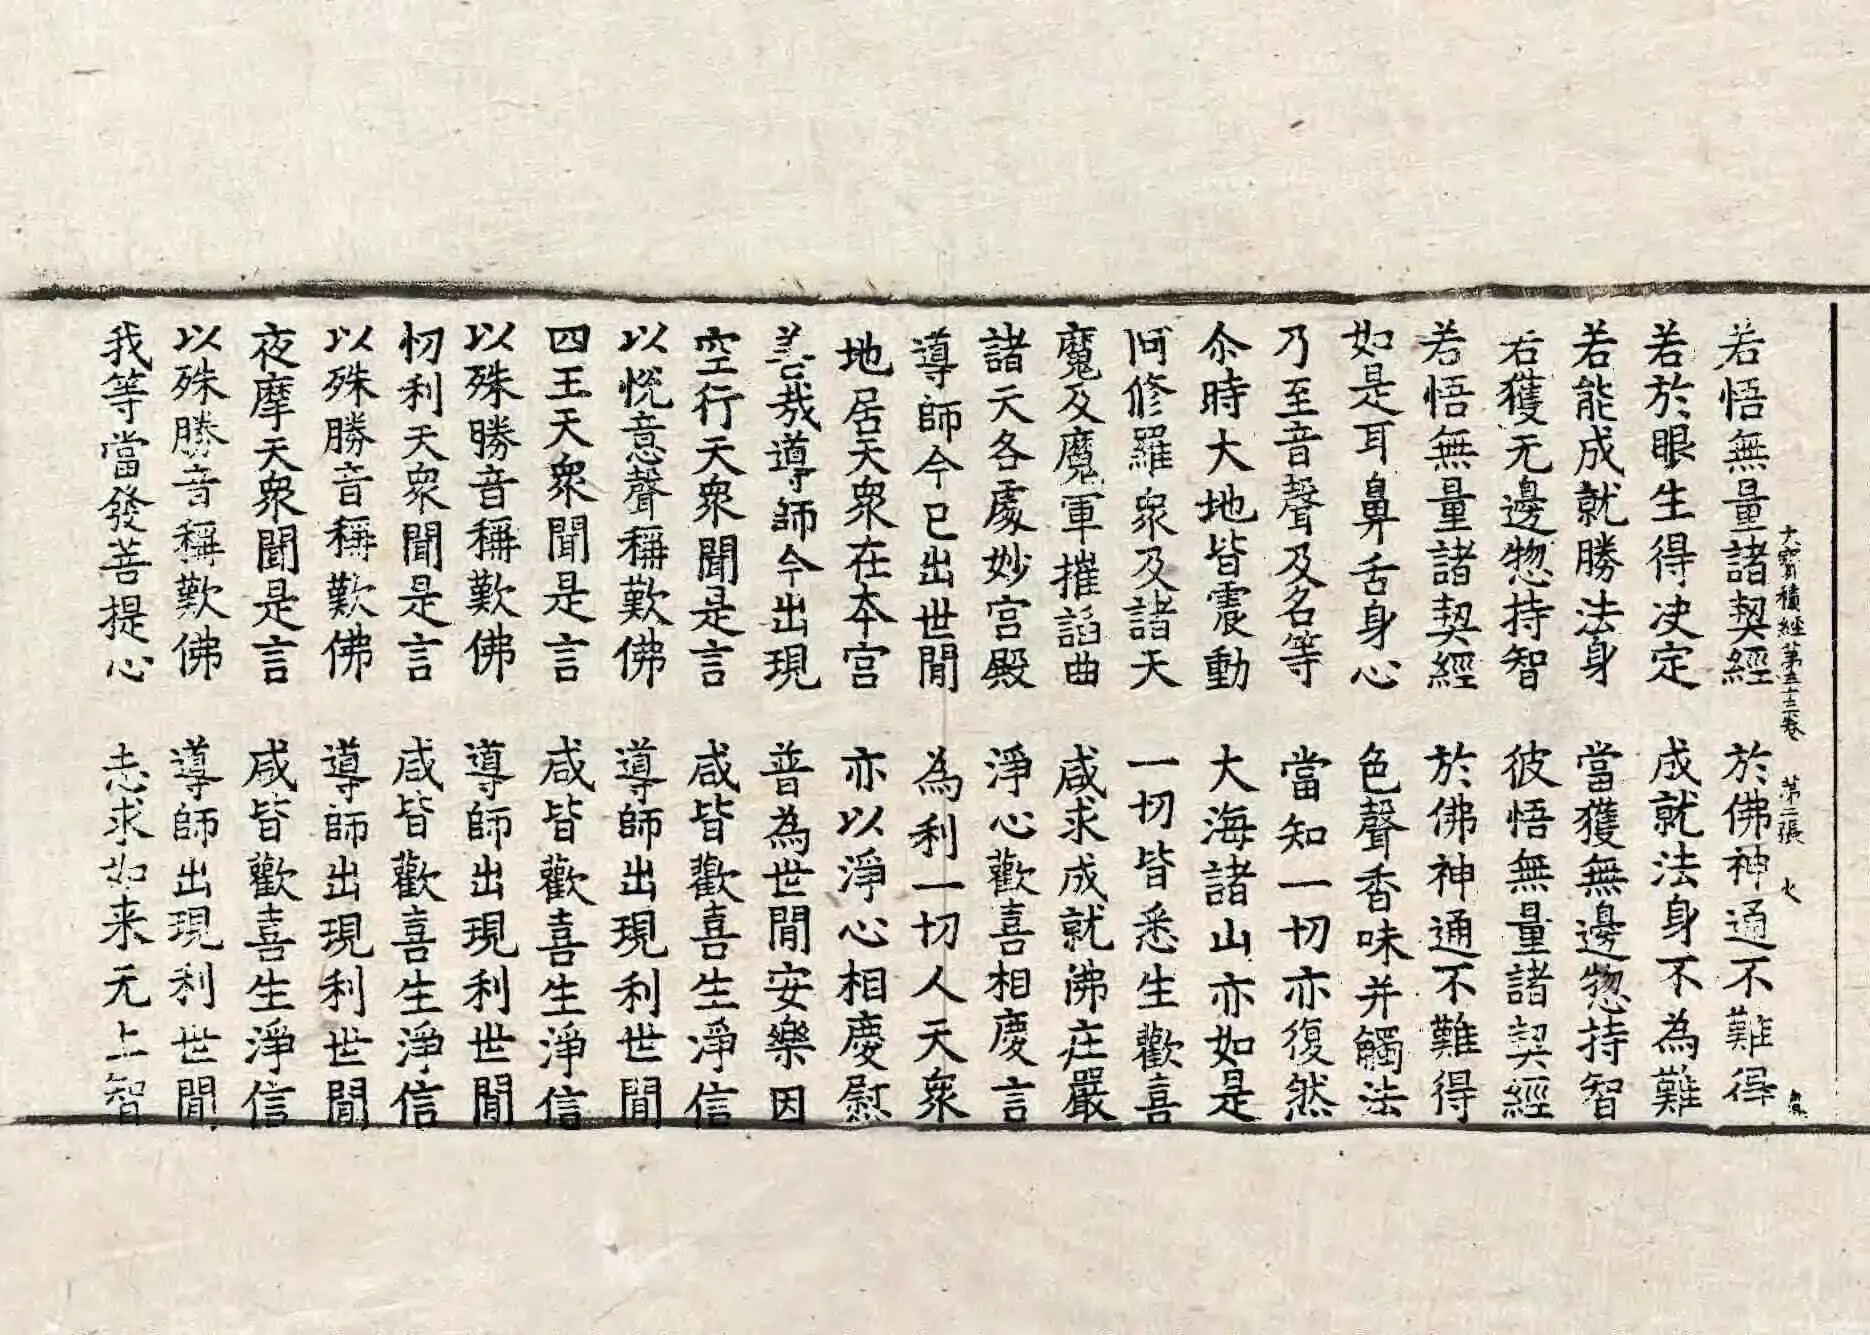 大寶積經第五十三卷 第二張 七
若悟無量諸契經 於佛神通不難得
若於眼生得决定 成就法身不為難
若能成就勝法身 當獲無邊惣持智
若獲无邊惣持智 彼悟無量諸契經
若悟無量諸契經 於佛神通不難得
如是耳鼻舌身心 色聲香味并觸法
乃至音聲及名等 當知一切亦復然
尒時大地皆震動 大海諸山亦如是
阿修羅衆及諸天 一切皆悉生歡喜
魔及魔軍摧謟曲 咸求成就佛庄嚴
諸天各處妙宫殿 淨心歡喜相慶言
導師今已出世閒 為利一切人天衆
地居天衆在本宫 亦以淨心相慶慰
善哉導師今出現 普為世閒安樂因
空行天衆聞是言 咸皆歡喜生淨信
以悅意聲稱歎佛 導師出現利世閒
四王天衆聞是言 咸皆歡喜生淨信
以殊勝音稱歎佛 導師出現利世閒
忉利天衆聞是言 咸皆歡喜生淨信
以殊勝音稱歎佛 導師出現利世閒
夜摩天衆聞是言 咸皆歡喜生淨信
以殊勝音稱歎佛 導師出現利世閒
我等當發菩提心 志求如来无上智